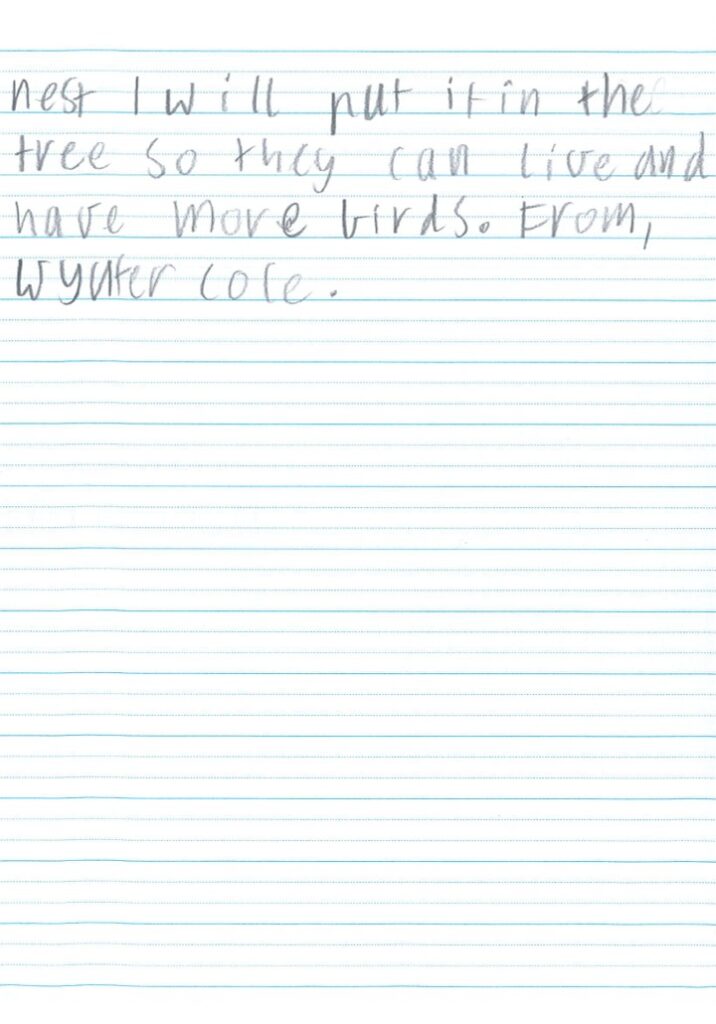 nest I will put it in the
tree so they can live and
have more birds. From,
Wynter Cole.